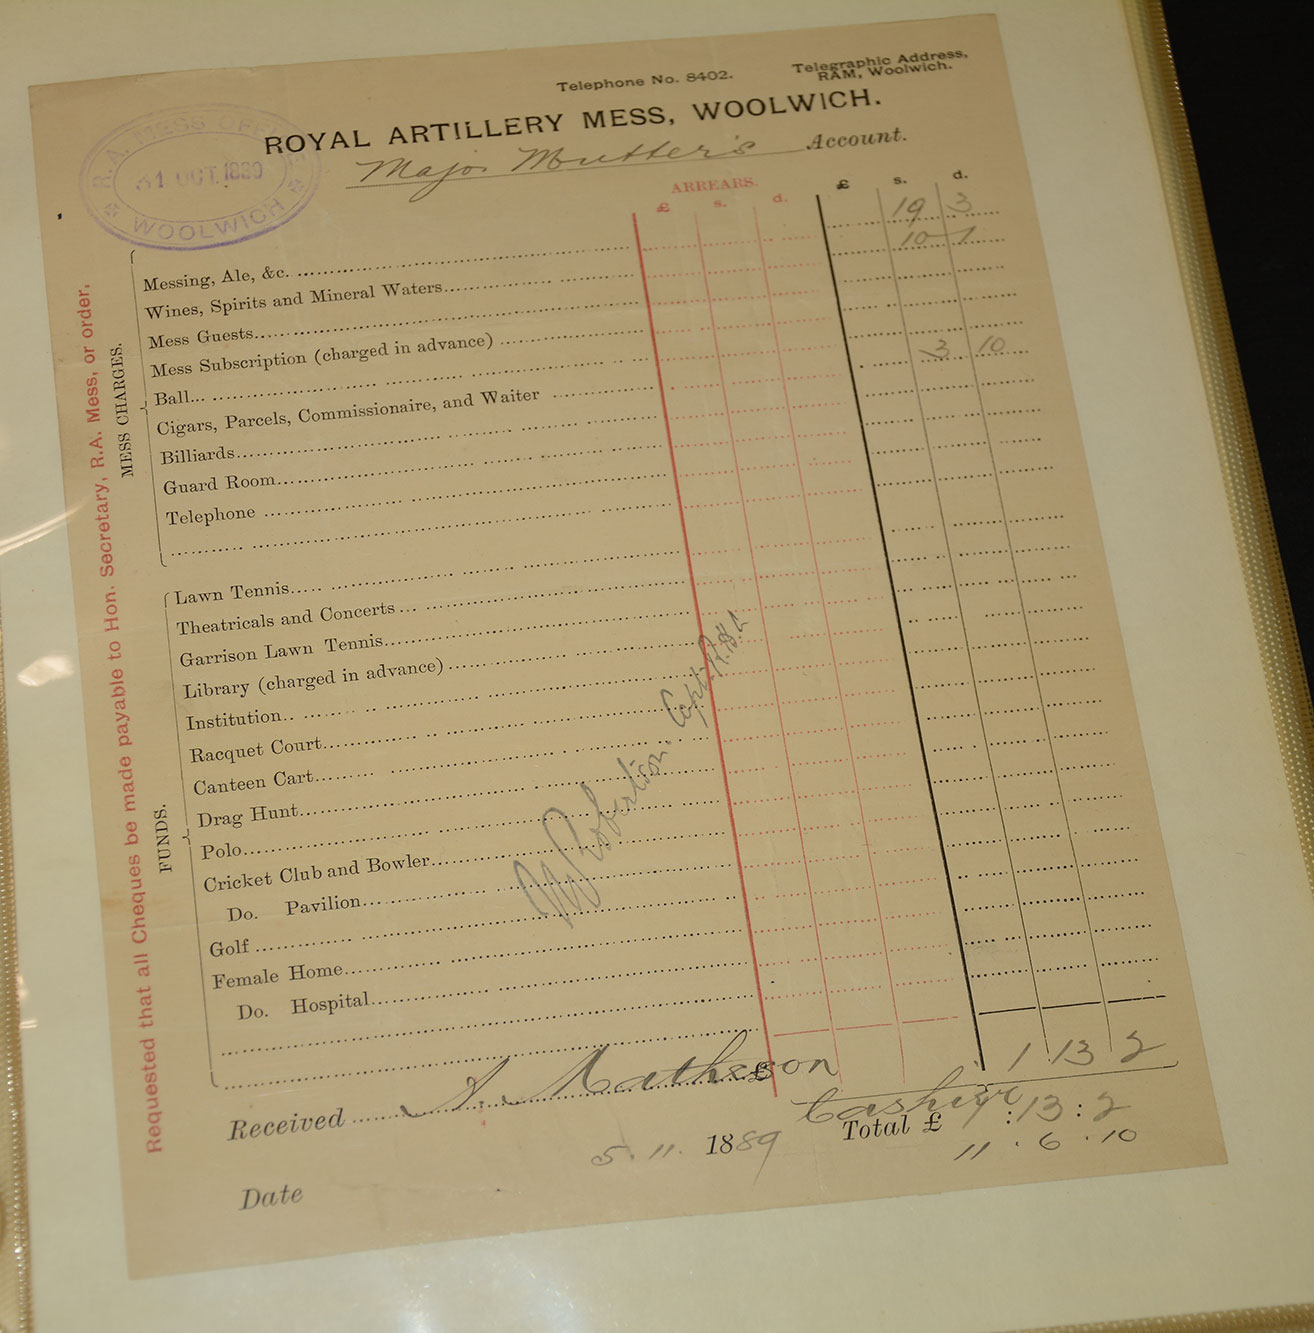 Telephone No. 8402.
Telegraphic Address,
RAM, Woolwich.
ROYAL ARTILLERY MESS, WOOLWICH.
Major Mutter's Account.
R.A. MESS OFFICE
31 OCT. 1889
WOOLWICH
ARREARS.
£ s. d. £ s. d.
MESS CHARGES.
Messing, Ale, &c. 19 3
Wines, Spirits and Mineral Waters 10 1
Mess Guests
Mess Subscription (charged in advance)
Ball
Cigars, Parcels, Commissionaire, and Waiter 3 10
Billiards
Guard Room
Telephone
FUNDS.
Lawn Tennis
Theatricals and Concerts
Garrison Lawn Tennis
Library (charged in advance)
Institution
Racquet Court
Canteen Cart
Drag Hunt
Polo
Cricket Club and Bowler
Do. Pavilion
Golf
Female Home
Do. Hospital
Robertson Capt. R.H.A
£ 1 13 2
Received Matheson
Cashier
Total £ 1 : 13 : 2
5. 11. 1889
11 . 6 . 10
Date
Requested that all Cheques be made payable to Hon. Secretary, R.A. Mess, or order.